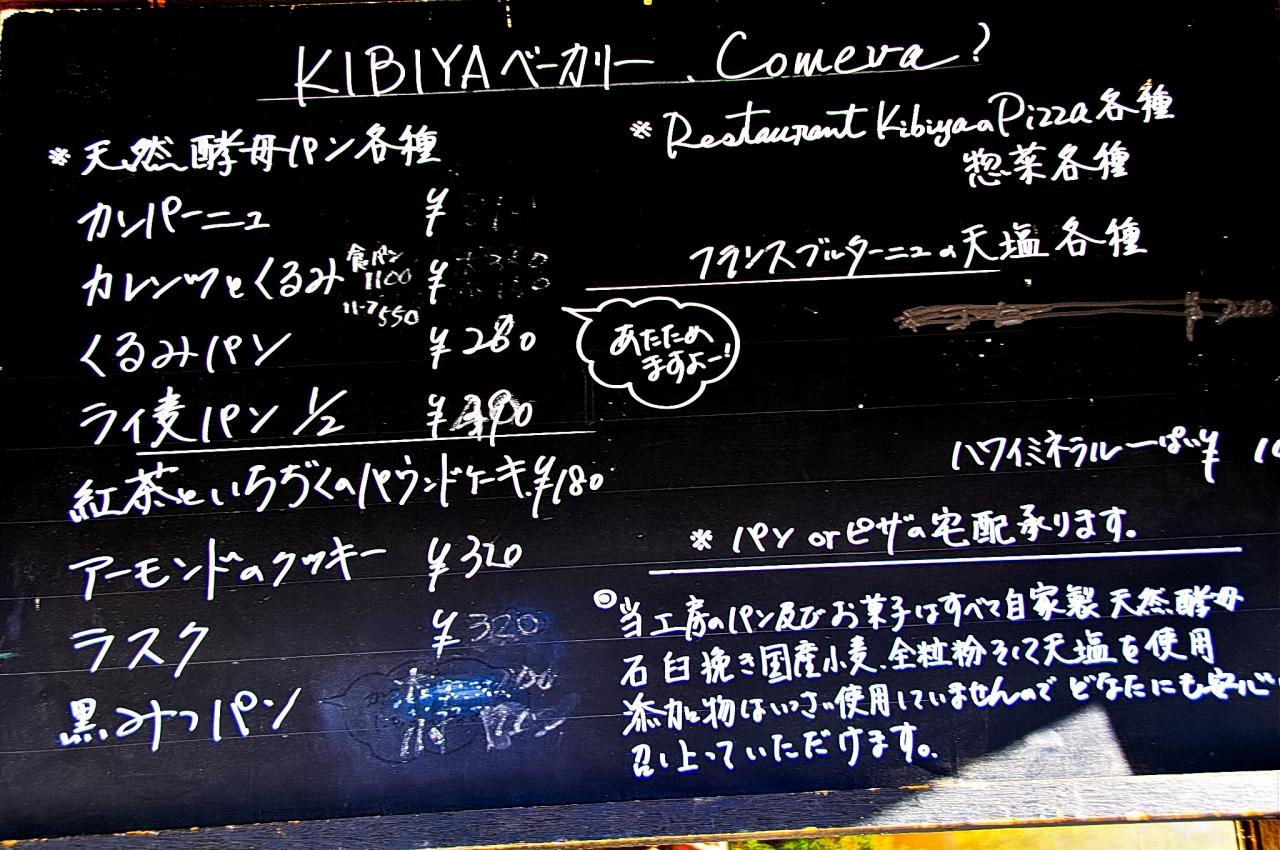 KIBIYAベーカリー. Comeva?
*天然酵母パン各種
カンパーニュ ¥
カレンツとくるみ ¥
食パン
1100
550
くるみパン ¥280
ライ麦パン 1/2 ¥390
紅茶といちぢくのパウンドケーキ ¥180
アーモンドのクッキー ¥320
ラスク ¥320
黒みつパン
*Restaurant KibiyaのPizza各種
惣菜各種
フランスブルターニュの天塩各種
あたため
ますよー!
ハワイミネラル一ぱい¥
*パン orピザの宅配承ります。
◎当工房のパン及びお菓子はすべて自家製天然酵母
石臼挽き国産小麦、全粒粉そして天塩を使用
添加物はいっさい使用していませんので どなたにも安心
召し上っていただけます。